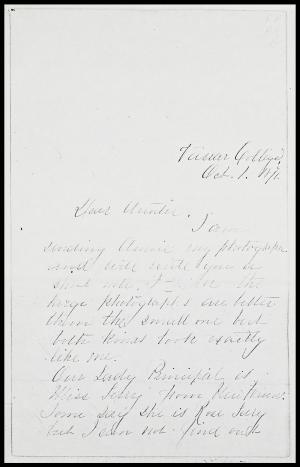 Vassar College,
Oct. 1. 
Dear Auntie.
I am
sending Annie my photograph
and will write you a
short note. I the
large photographs are better
than the small one but
both kinds look exactly
like me.
Our Lady Principal is
Miss Terry from
Some say she is Rose Terry
but I can not find out